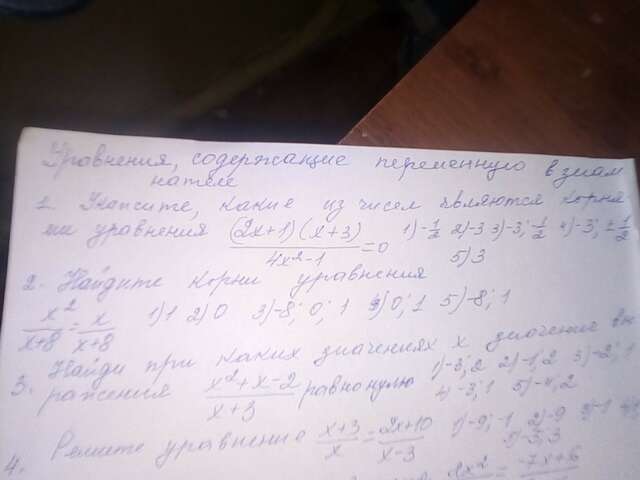 Уравнения, содержащие переменную в знам
нателе
1. Укажите, какие из чисел являются корня
ми уравнения (2x+1)(x+3)/4x²-1 =0 1)-1/2 2)-3 3)-3; -1/2 4)-3; ±1/2
5)3
2. Найдите корни уравнения
x²/x+8 = x/x+8 1)1 2)0 3)-8; 0; 1 4)0; 1 5)-8; 1
3. Найди при каких значениях x значение вы
ражения x²+x-2/x+3 равно нулю 1)-3; 2 2)-1; 2 3)-2; 1
4)-3; 1 5)-4; 2
4. Решите уравнение x+3/x = 2x+10/x-3 1)-9; -1 2)-9 3)-1
5)-3; 3
2x² = -7x+6